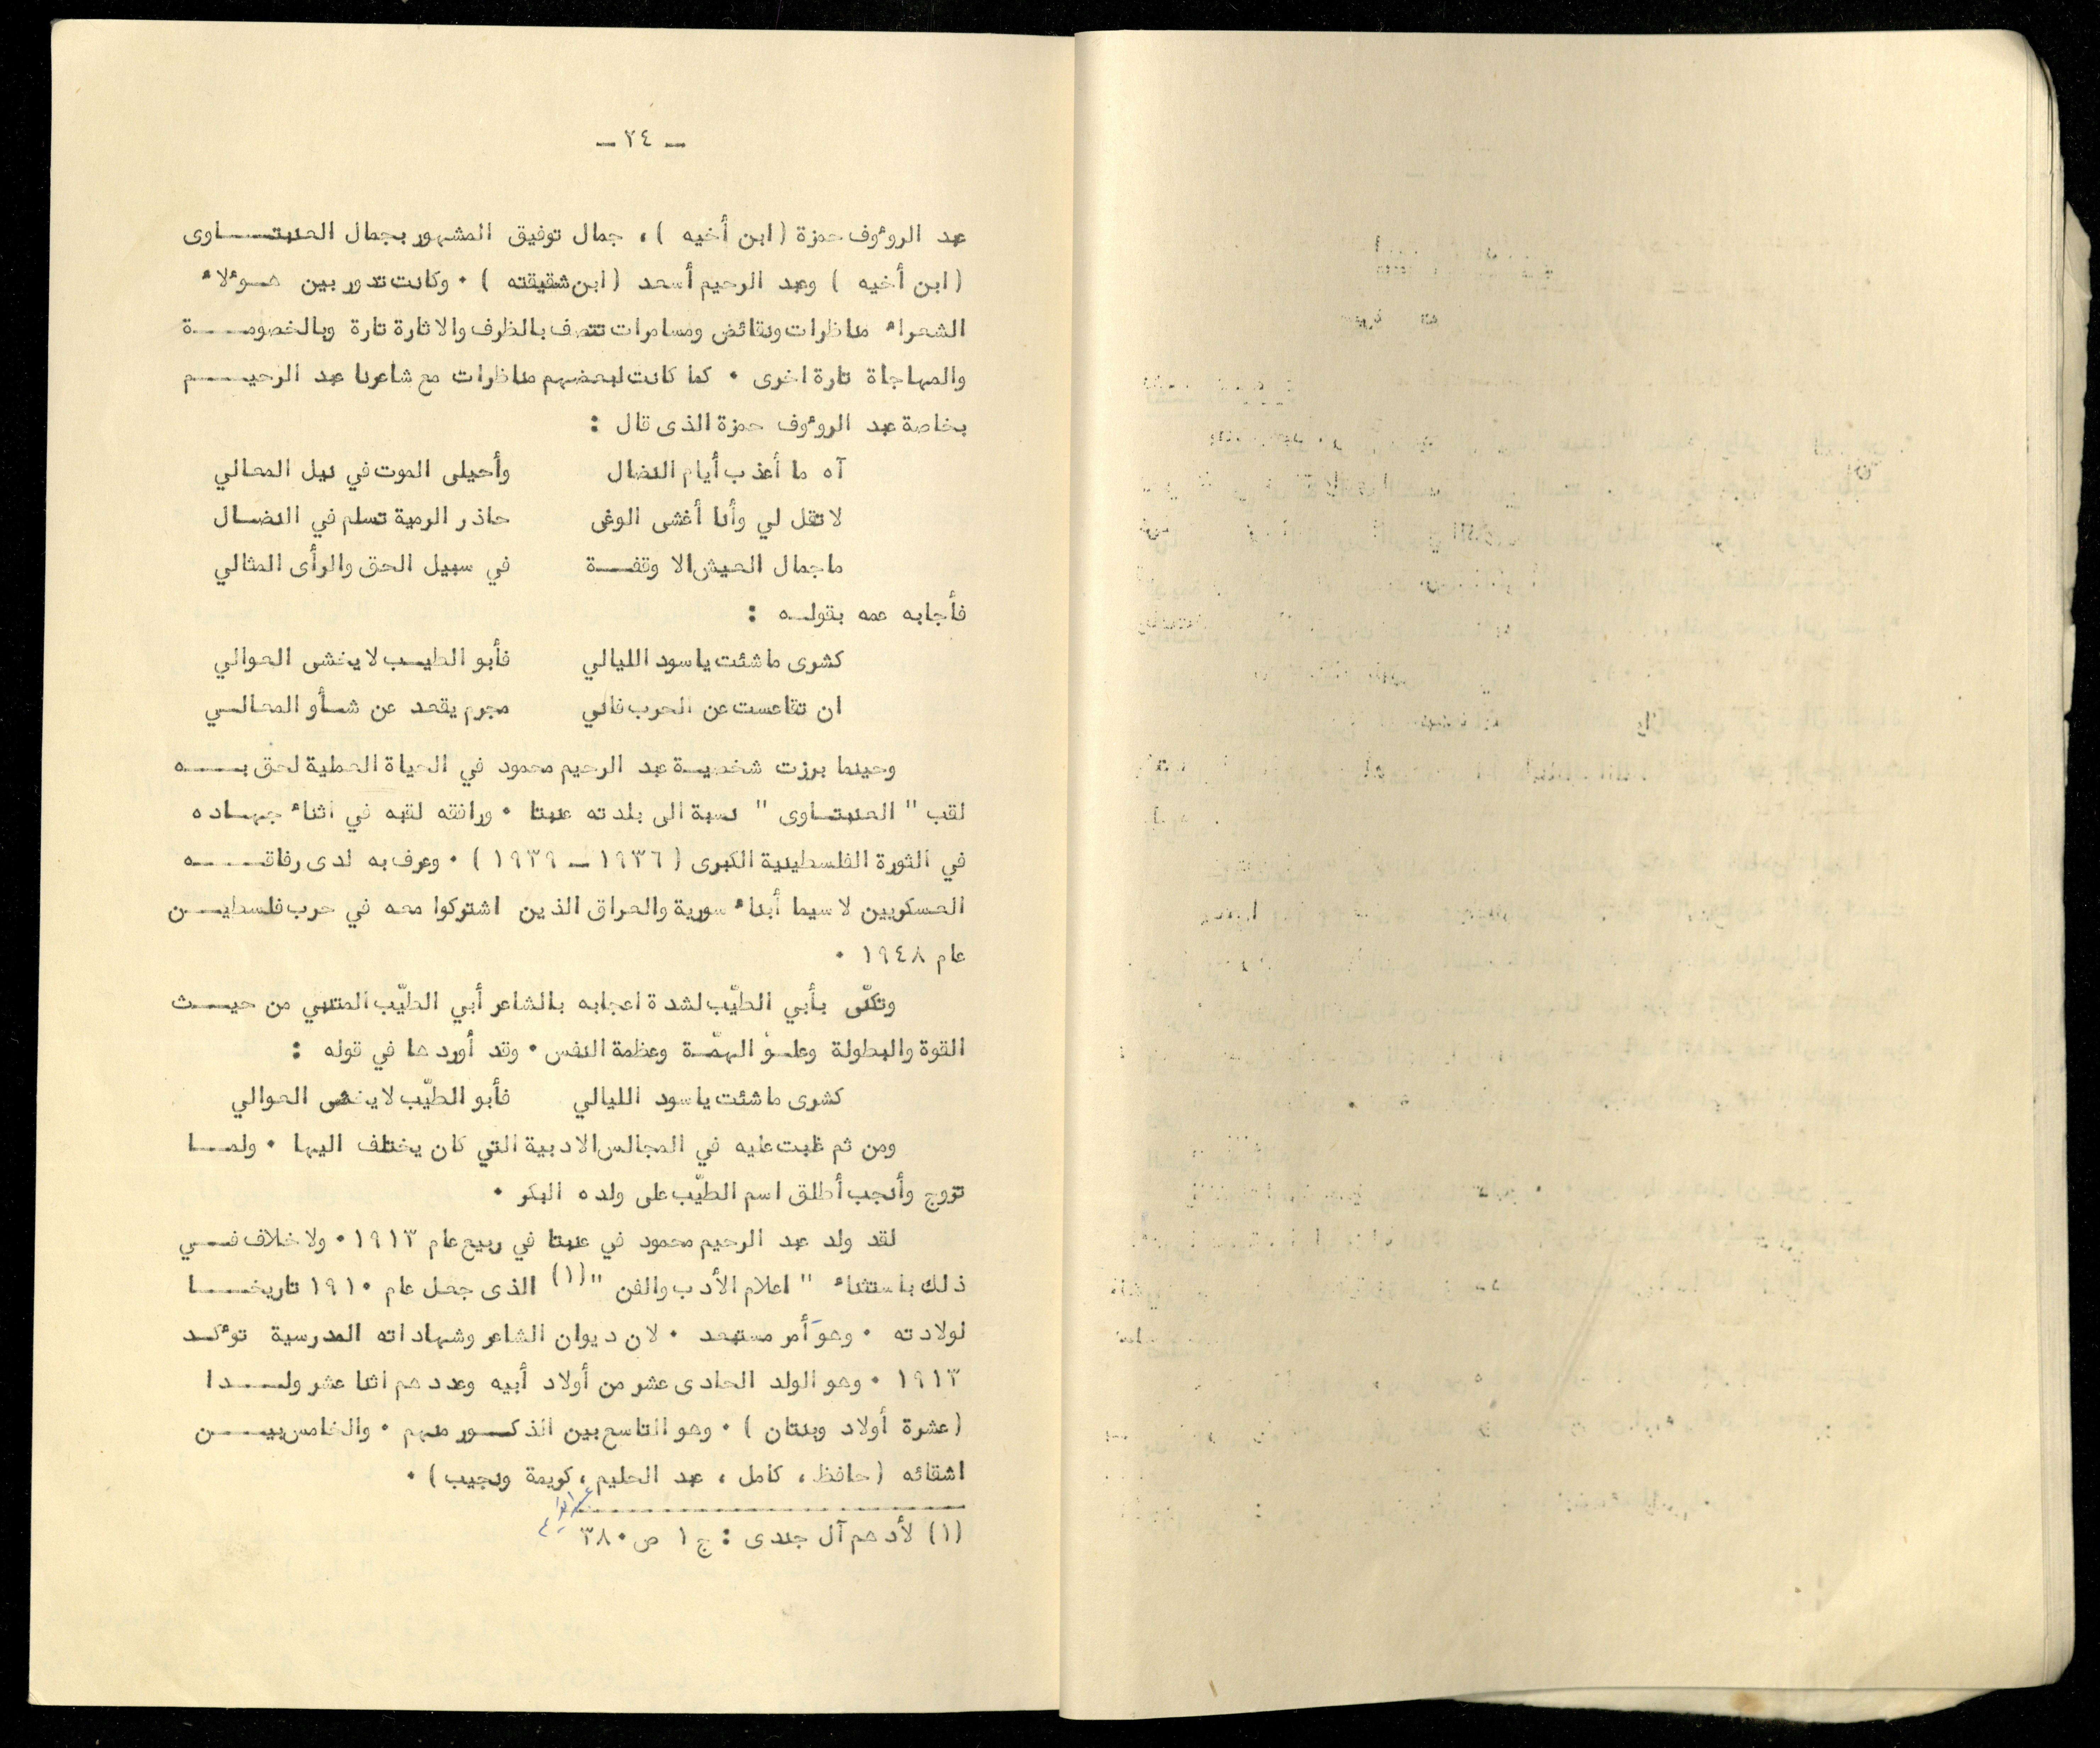 — ٢٤ —
عبد الروٴوف حمزة (ابن أخيه) ، جمال توفيق المشهور بجمال العنبتـــاوى
(ابن أخيه) وعبد الرحيم أسعد (ابن شقيقته) . وكانت تدور بين هـوٴلاء
الشعراء مناظرات ونقائض ومسامرات تتصف بالظرف والاثارة تارة وبالخصومـــة
والمهاجاة تارة اخرى . كما كانت لبعضهم مناظرات مع شاعرنا عبد الرحيـــم
بخاصة عبد الروٴوف حمزة الذى قال :
آه ما أعذب أيام النضال وأحيلى الموت في نيل المعالي
لا تقل لي وأنا أغشى الوغى حاذر الرمية تسلم في النضـال
ما جمال العيش الا وقفـة في سبيل الحق والرأى المثالي
فأجابه عمه بقولـه :
كشرى ما شئت يا سود الليالي فأبو الطيـب لا يخشى العوالي
ان تقاعست عن الحرب فاني مجرم يقعد عن شـأو المعالـي
وحينما برزت شخصيـة عبد الرحيم محمود في الحياة العملية لحق بـــه
لقب " العنبتـاوى " نسبة الى بلدته عنبتا . ورافقه لقبه في اثناء جهـاده
في الثورة الفلسطينية الكبرى (١٩٣٦ ــ ١٩٣٩) . وعرف به لدى رفاقـــه
العسكريين لا سيما أبناء سورية والعراق الذين اشتركوا معه في حرب فلسطيـــن
عام ١٩٤٨ .
وتكنّى بأبي الطيّب لشدة اعجابه بالشاعر أبي الطيّب المتنبي من حيـــث
القوة والبطولة وعلـوّ الهمّـة وعظمة النفس . وقد أوردها في قوله :
كشرى ما شئت يا سود الليالي فأبو الطيّب لا يخشى العوالي
ومن ثم غلبت عليه في المجالس الادبية التي كان يختلف اليها . ولمـــا
تزوج وأنجب أطلق اسم الطيّب على ولده البكر .
لقد ولد عبد الرحيم محمود في عنبتا في ربيع عام ١٩١٣ . ولا خلاف فـــي
ذلك باستثناء " اعلام الأدب والفن "(١) الذى جعـل عام ١٩١٠ تاريخـــا
لولادته . وهو أمر مستبعد . لان ديوان الشاعر وشهاداته المدرسية توٴكـد
١٩١٣ . وهو الولد الحادى عشر من أولاد أبيه وعددهم اثنا عشر ولـــدا
(عشرة أولاد وبنتان) . وهو التاسع بين الذكـور منهم . والخامس بيـــن
اشقائه (حافظ ، كامل ، عبد الحليم ، كريمة ونجيب) .
(١) لأدهم آل جندى : ج ١ ص ٣٨٠